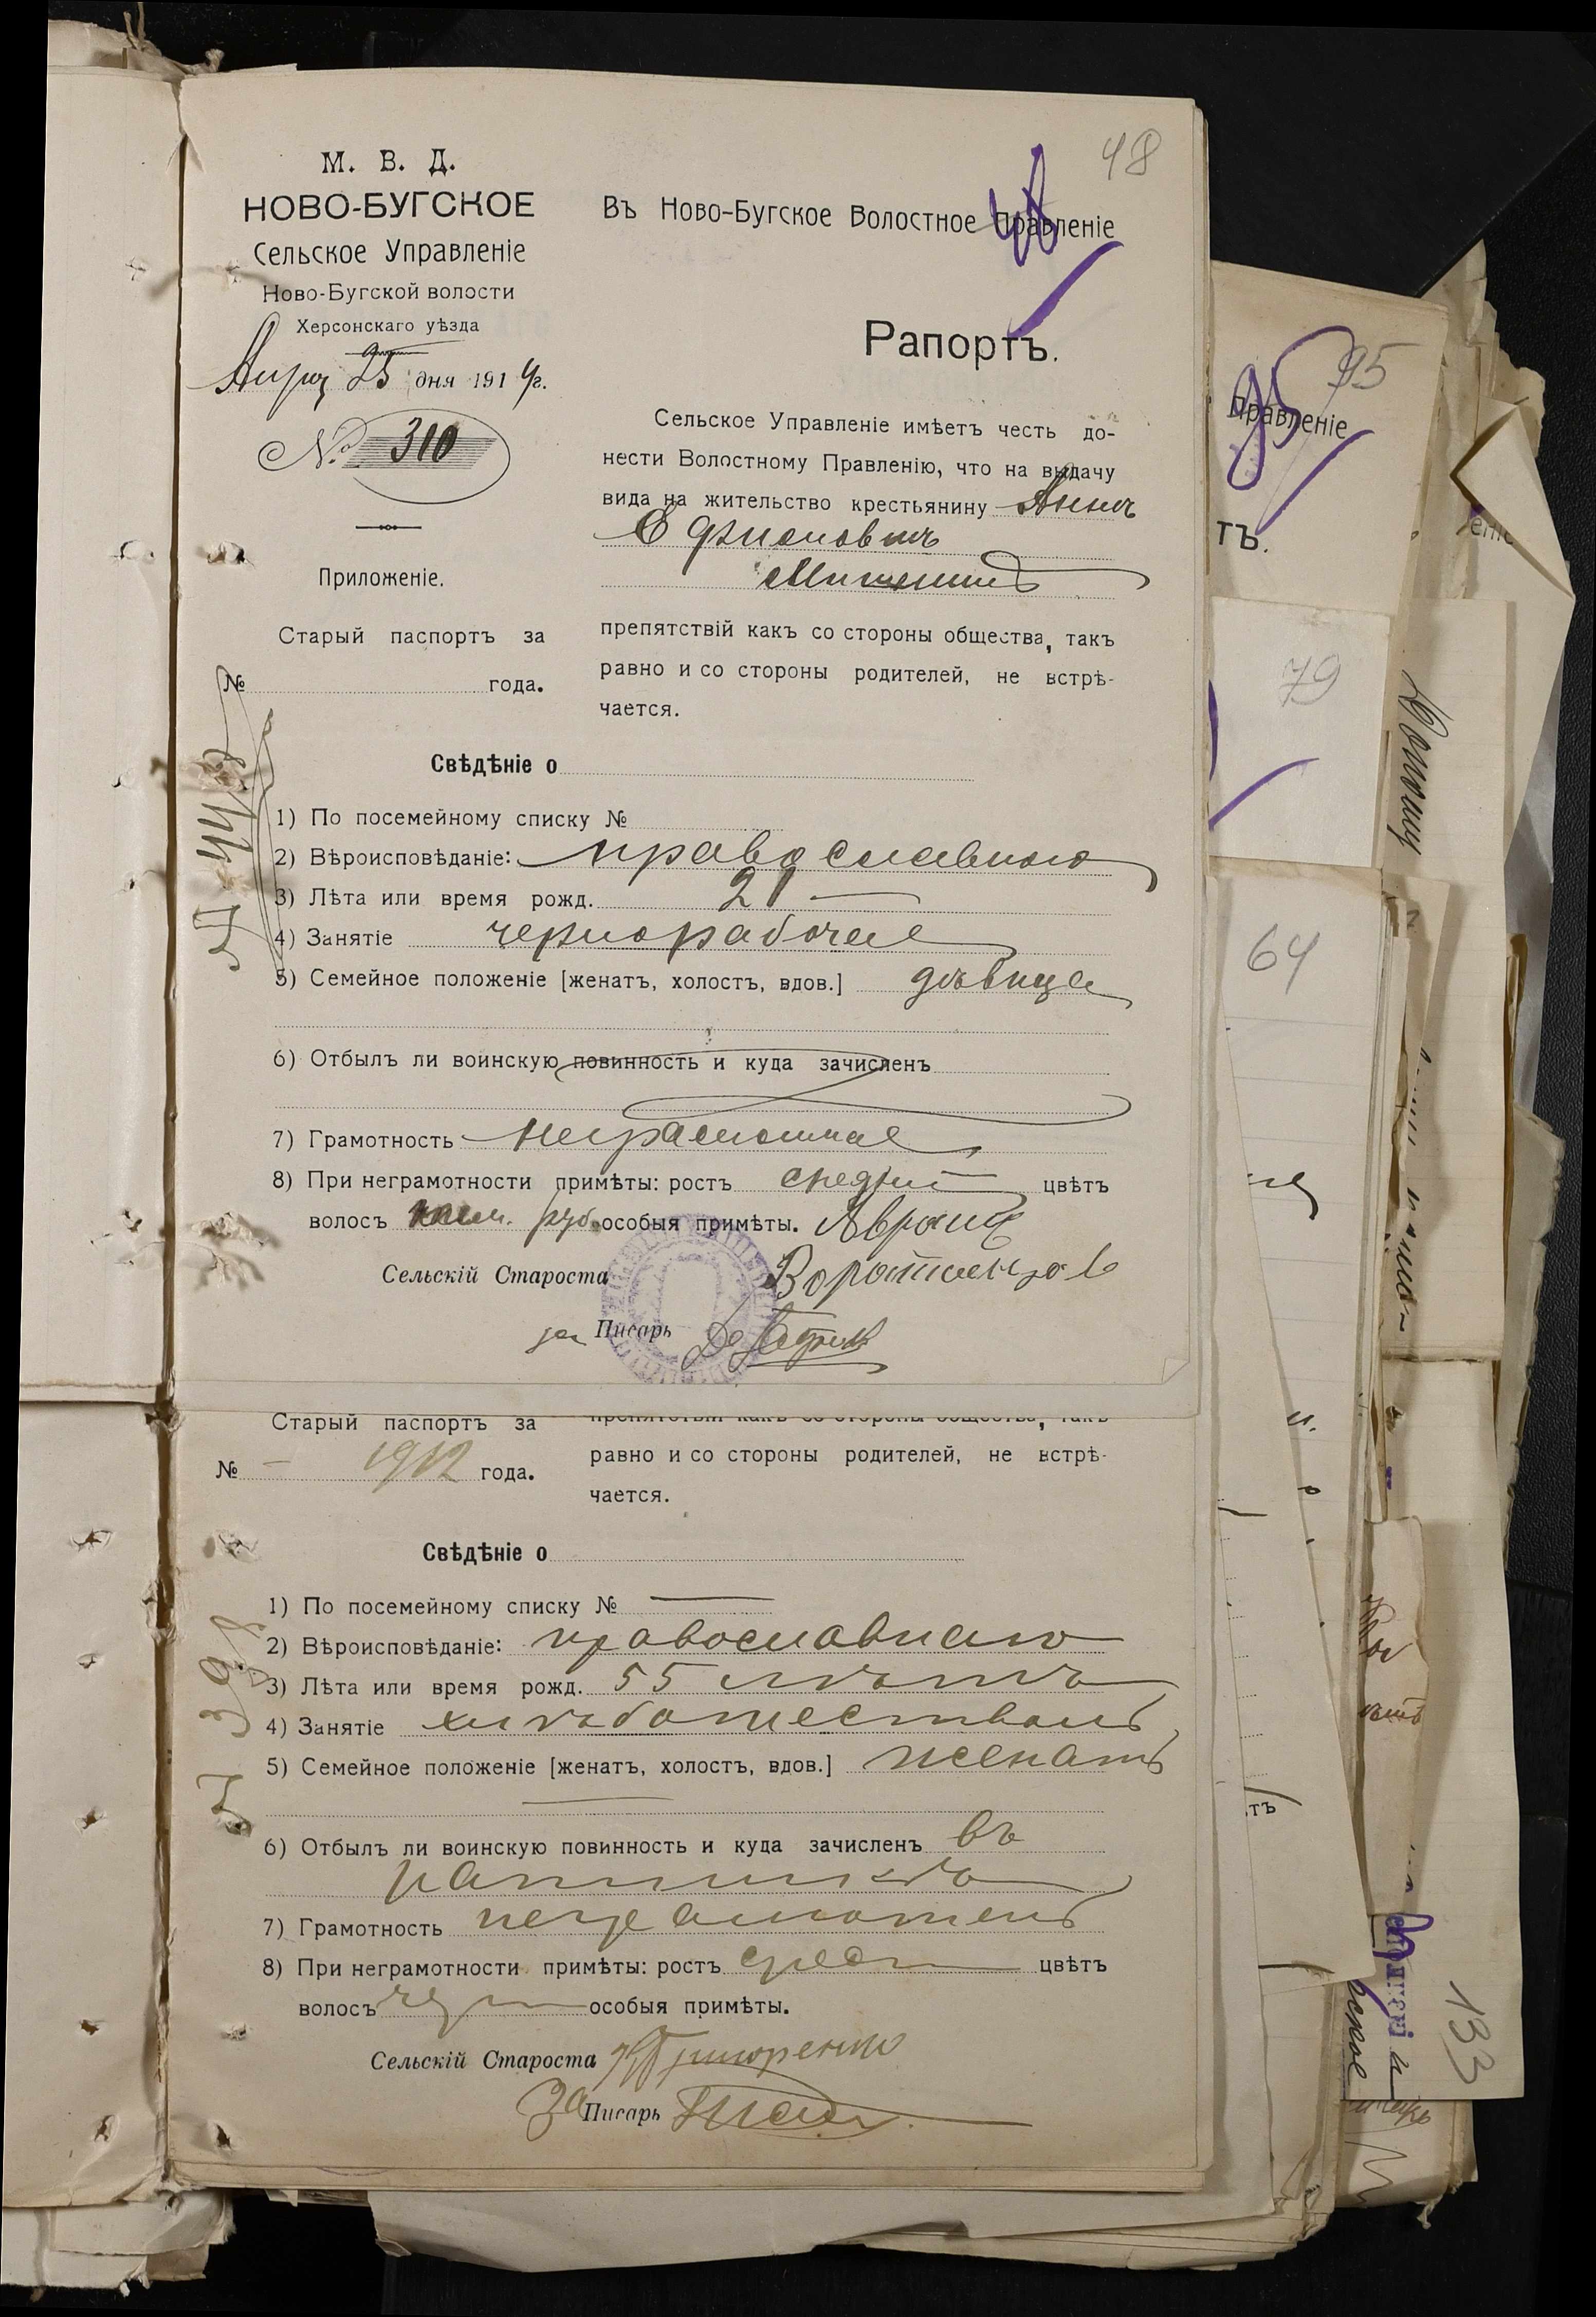 48
М. В. Д.
НОВО-БУГСКОЕ
Сельское Управленіе
Ново-Бугской волости
Херсонскаго уѣзда
25 дня 1914 г.
№ 310
Приложеніе.
Старый паспортъ за
№ года.
Въ Ново-Бугское Волостное Правленіе
48
Рапортъ.
Сельское Управленіе имѣетъ честь до-
нести Волостному Правленію, что на выдачу
вида на жительство крестьянину Аннѣ
препятствій какъ со стороны общества, такъ
равно и со стороны родителей, не встрѣ-
чается.
Свѣдѣніе о
1) По посемейному списку №
2) Вѣроисповѣданіе: православного
3) Лѣта или время рожд. 21
4) Занятіе чернорабочая
5) Семейное положеніе [женатъ, холостъ, вдов.] дѣвица
6) Отбылъ ли воинскую повинность и куда зачисленъ
7) Грамотность неграмотная
8) При неграмотности примѣты: ростъ средній цвѣтъ
волосъ особыя примѣты.
Сельскій Староста
за Писарь
Старый паспортъ за
№ - 1912 года.
препятствій какъ со стороны общества, такъ
равно и со стороны родителей, не встрѣ-
чается.
Свѣдѣніе о
1) По посемейному списку №
2) Вѣроисповѣданіе: православнаго
3) Лѣта или время рожд. 55 лѣтъ
4) Занятіе хлѣбопашествомъ
5) Семейное положеніе [женатъ, холостъ, вдов.] женатъ
6) Отбылъ ли воинскую повинность и куда зачисленъ въ
7) Грамотность неграмотенъ
8) При неграмотности примѣты: ростъ сред цвѣтъ
волосъ особыя примѣты.
Сельскій Староста
За Писарь
95
95
Правленіе
тъ.
79
64
133